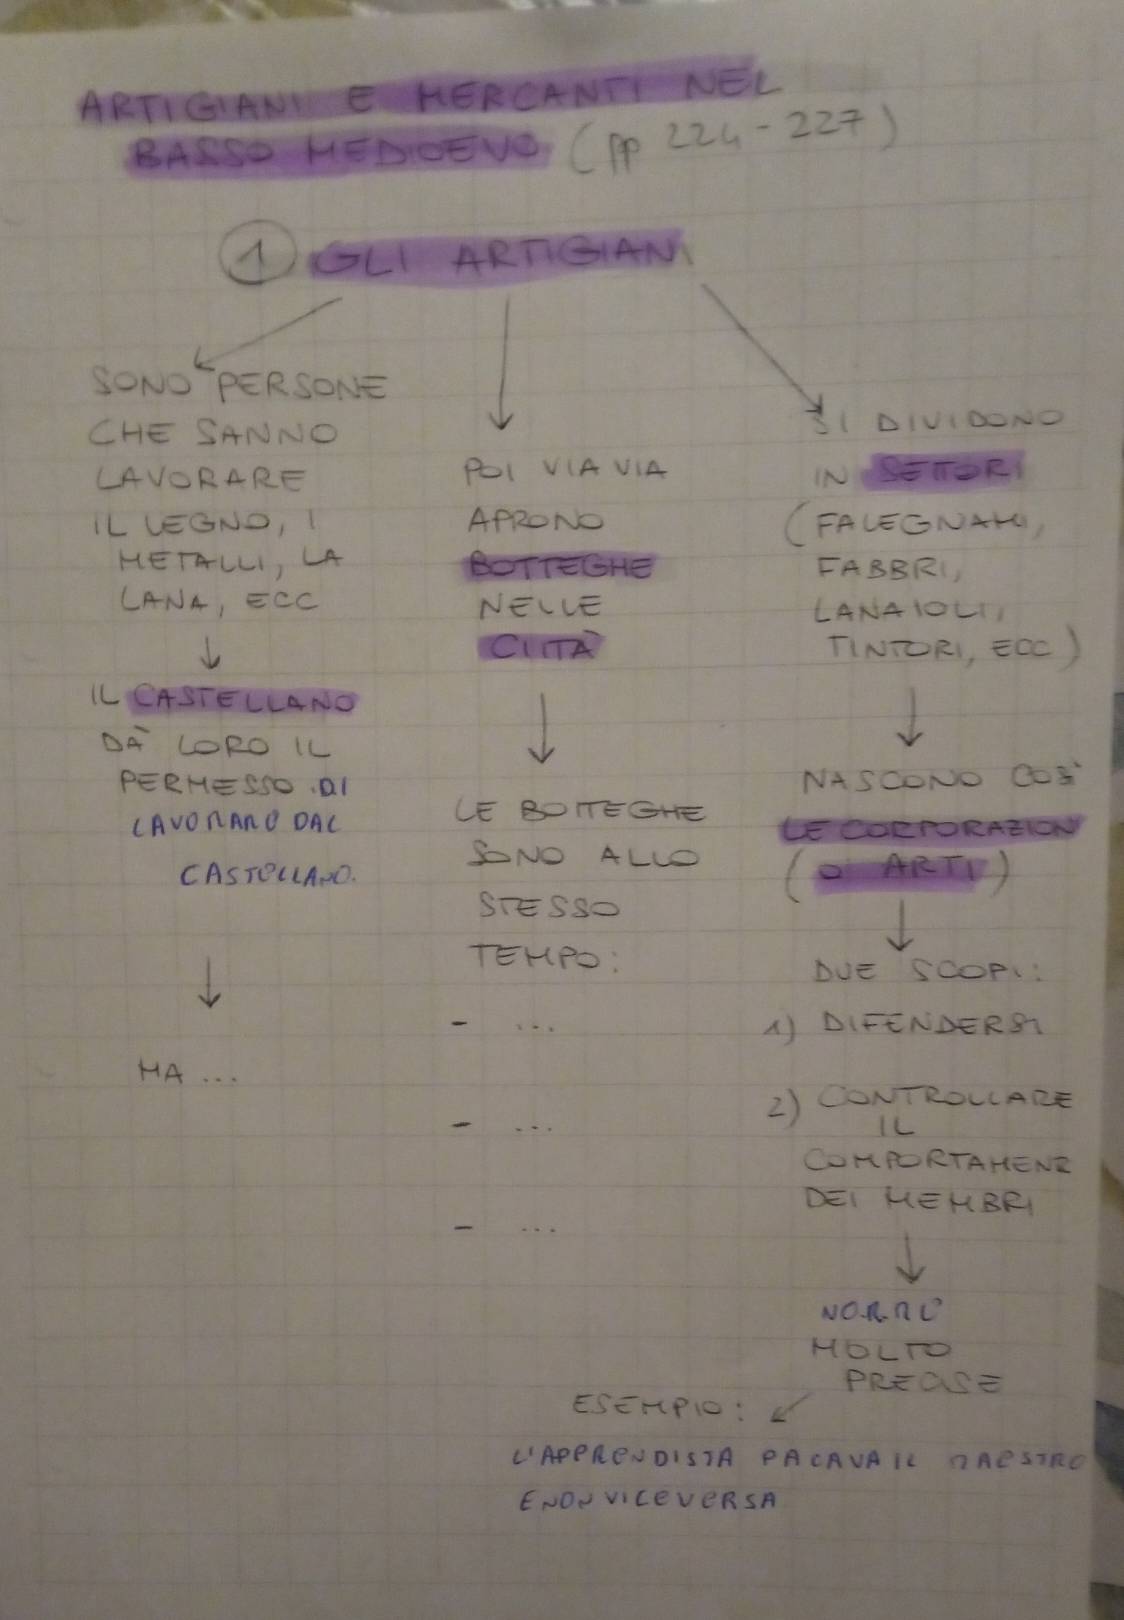 ARTIGIANI E MERCANTI NEL
BASSO MEDIOEVO (pp 224-227)
1 GLI ARTIGIANI
SONO PERSONE
CHE SANNO
LAVORARE
IL LEGNO, I
METALLI, LA
LANA, ECC
IL CASTELLANO
DÀ LORO IL
PERMESSO DI
LAVORARE DAL
CASTELLANO.
MA ...
POI VIA VIA
APRONO
BOTTEGHE
NELLE
CITTÀ
LE BOTTEGHE
SONO ALLO
STESSO
TEMPO:
- ...
- ...
- ...
SI DIVIDONO
IN SETTORI
(FALEGNAMI,
FABBRI,
LANAIOLI,
TINTORI, ECC)
NASCONO COSÌ
LE CORPORAZIONI
(O ARTI)
DUE SCOPI:
1) DIFENDERSI
2) CONTROLLARE
IL
COMPORTAMEN
DEI MEMBRI
NORME
MOLTO
PRECISE
ESEMPIO:
L'APPRENDISTA PAGAVA IL MAESTRO
E NON VICEVERSA